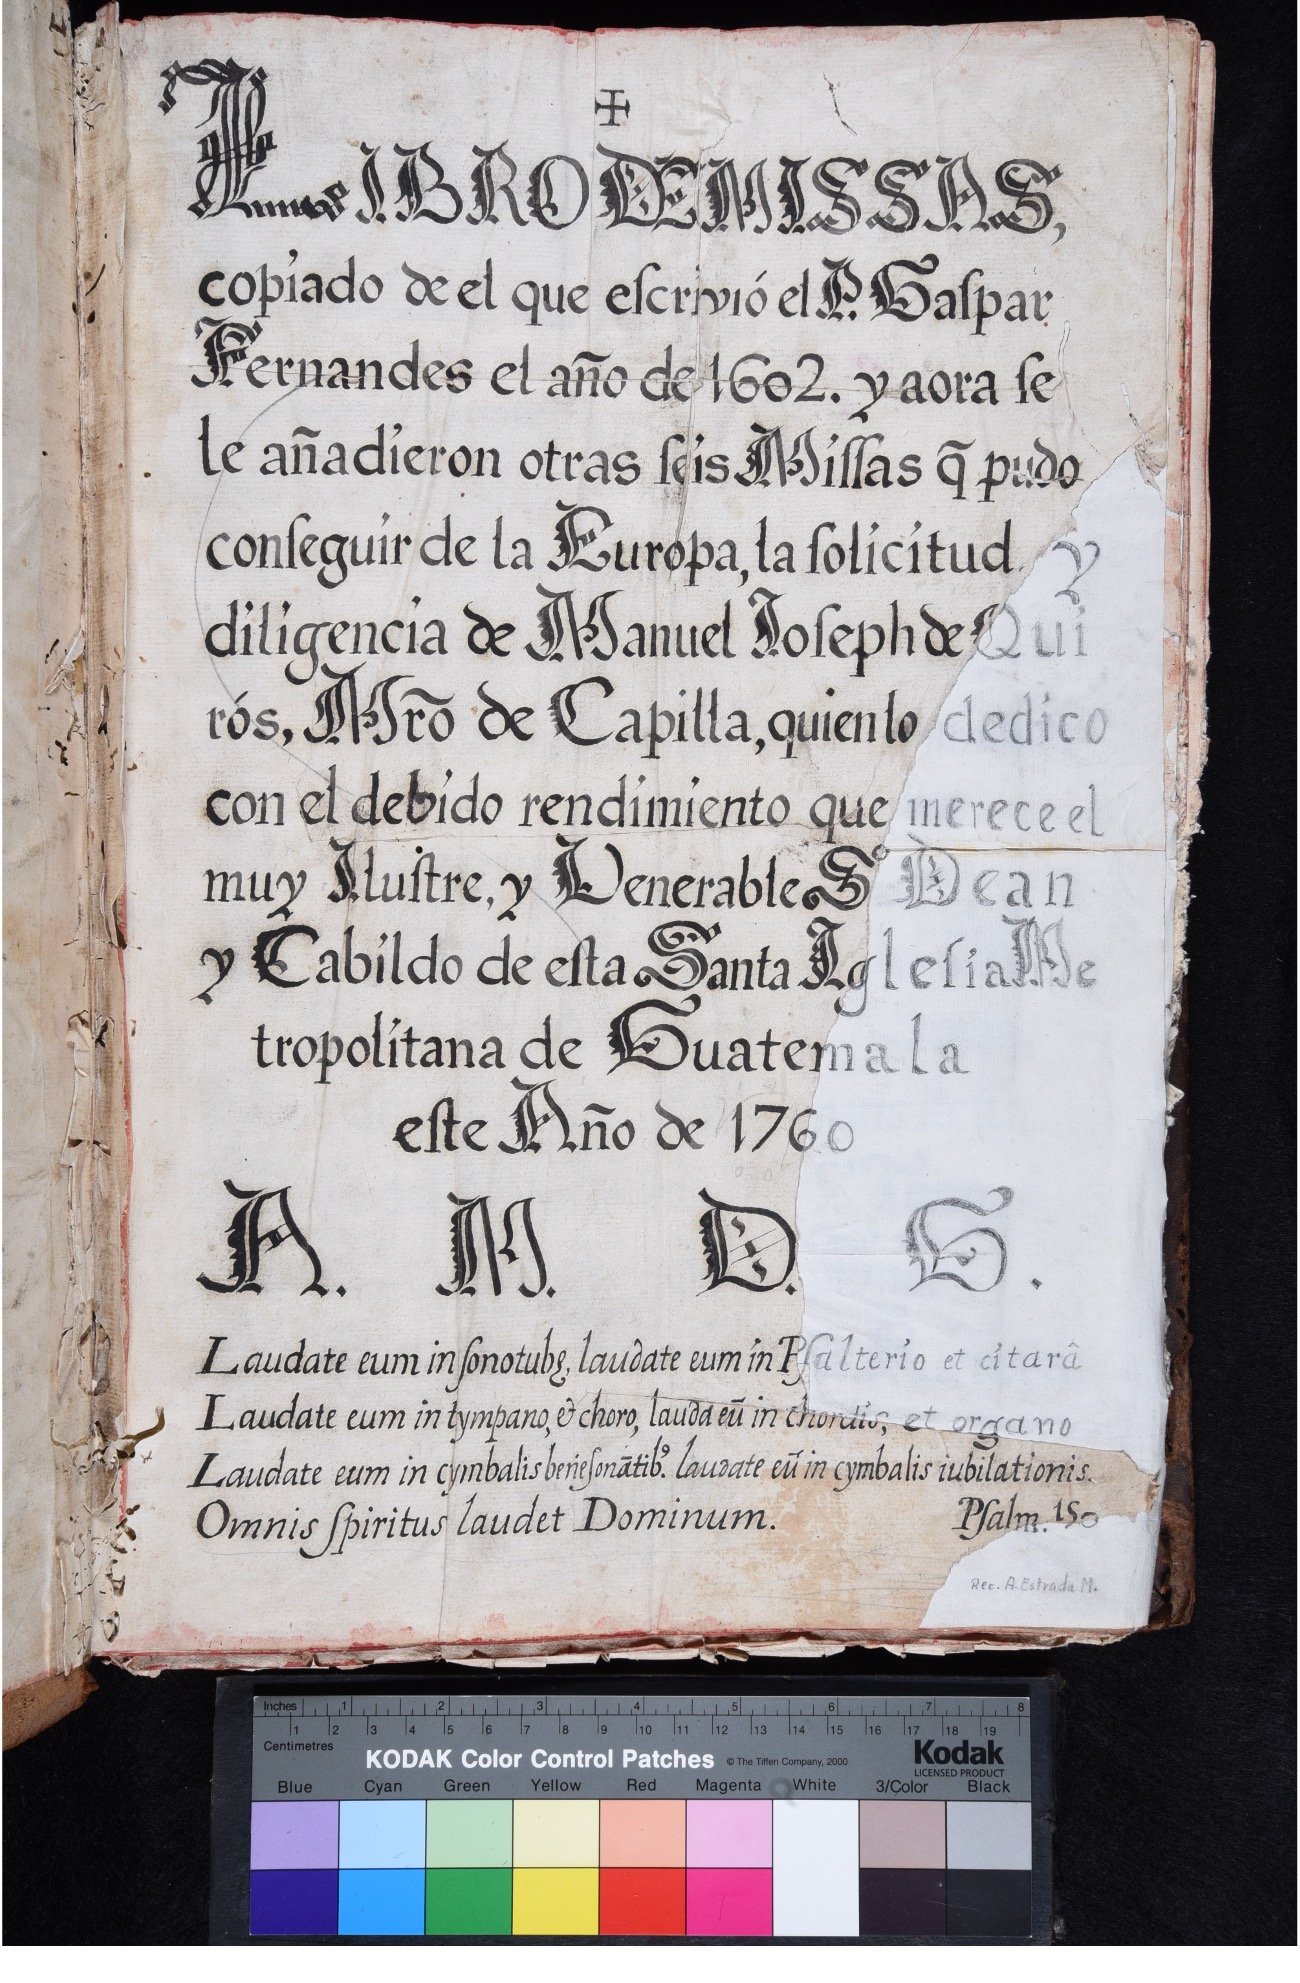 ✠
LIBRO DE MISSAS,
copiado de el que eſcrivió el P. Gaſpar
Fernandes el año de 1602. y aora ſe
le añadieron otras ſeis Miſſas q̃ pudo
conſeguir de la Europa, la ſolicitud y
diligencia de Manuel Ioſeph de Qui
rós, Mrõ de Capilla, quien lo dedico
con el debido rendimiento que merece el
muy Iluſtre, y Venerable Sº Dean
y Cabildo de eſta Santa Igleſia Me
tropolitana de Guatemala
eſte Año de 1760
A. M. D. G.
Laudate eum in ſono tubę, laudate eum in Pſalterio et citarâ
Laudate eum in tympano, & choro, laudā eũ in chordis, et organo
Laudate eum in cymbalis beneſonātibꝰ. laudate eũ in cymbalis iubilationis.
Omnis ſpiritus laudet Dominum. Pſalm. 150
Rec. A. Estrada M.
Inches 1 2 3 4 5 6 7 8
1 2 3 4 5 6 7 8 9 10 11 12 13 14 15 16 17 18 19
Centimetres
KODAK Color Control Patches © The Tiffen Company, 2000 Kodak
LICENSED PRODUCT
Blue Cyan Green Yellow Red Magenta White 3/Color Black